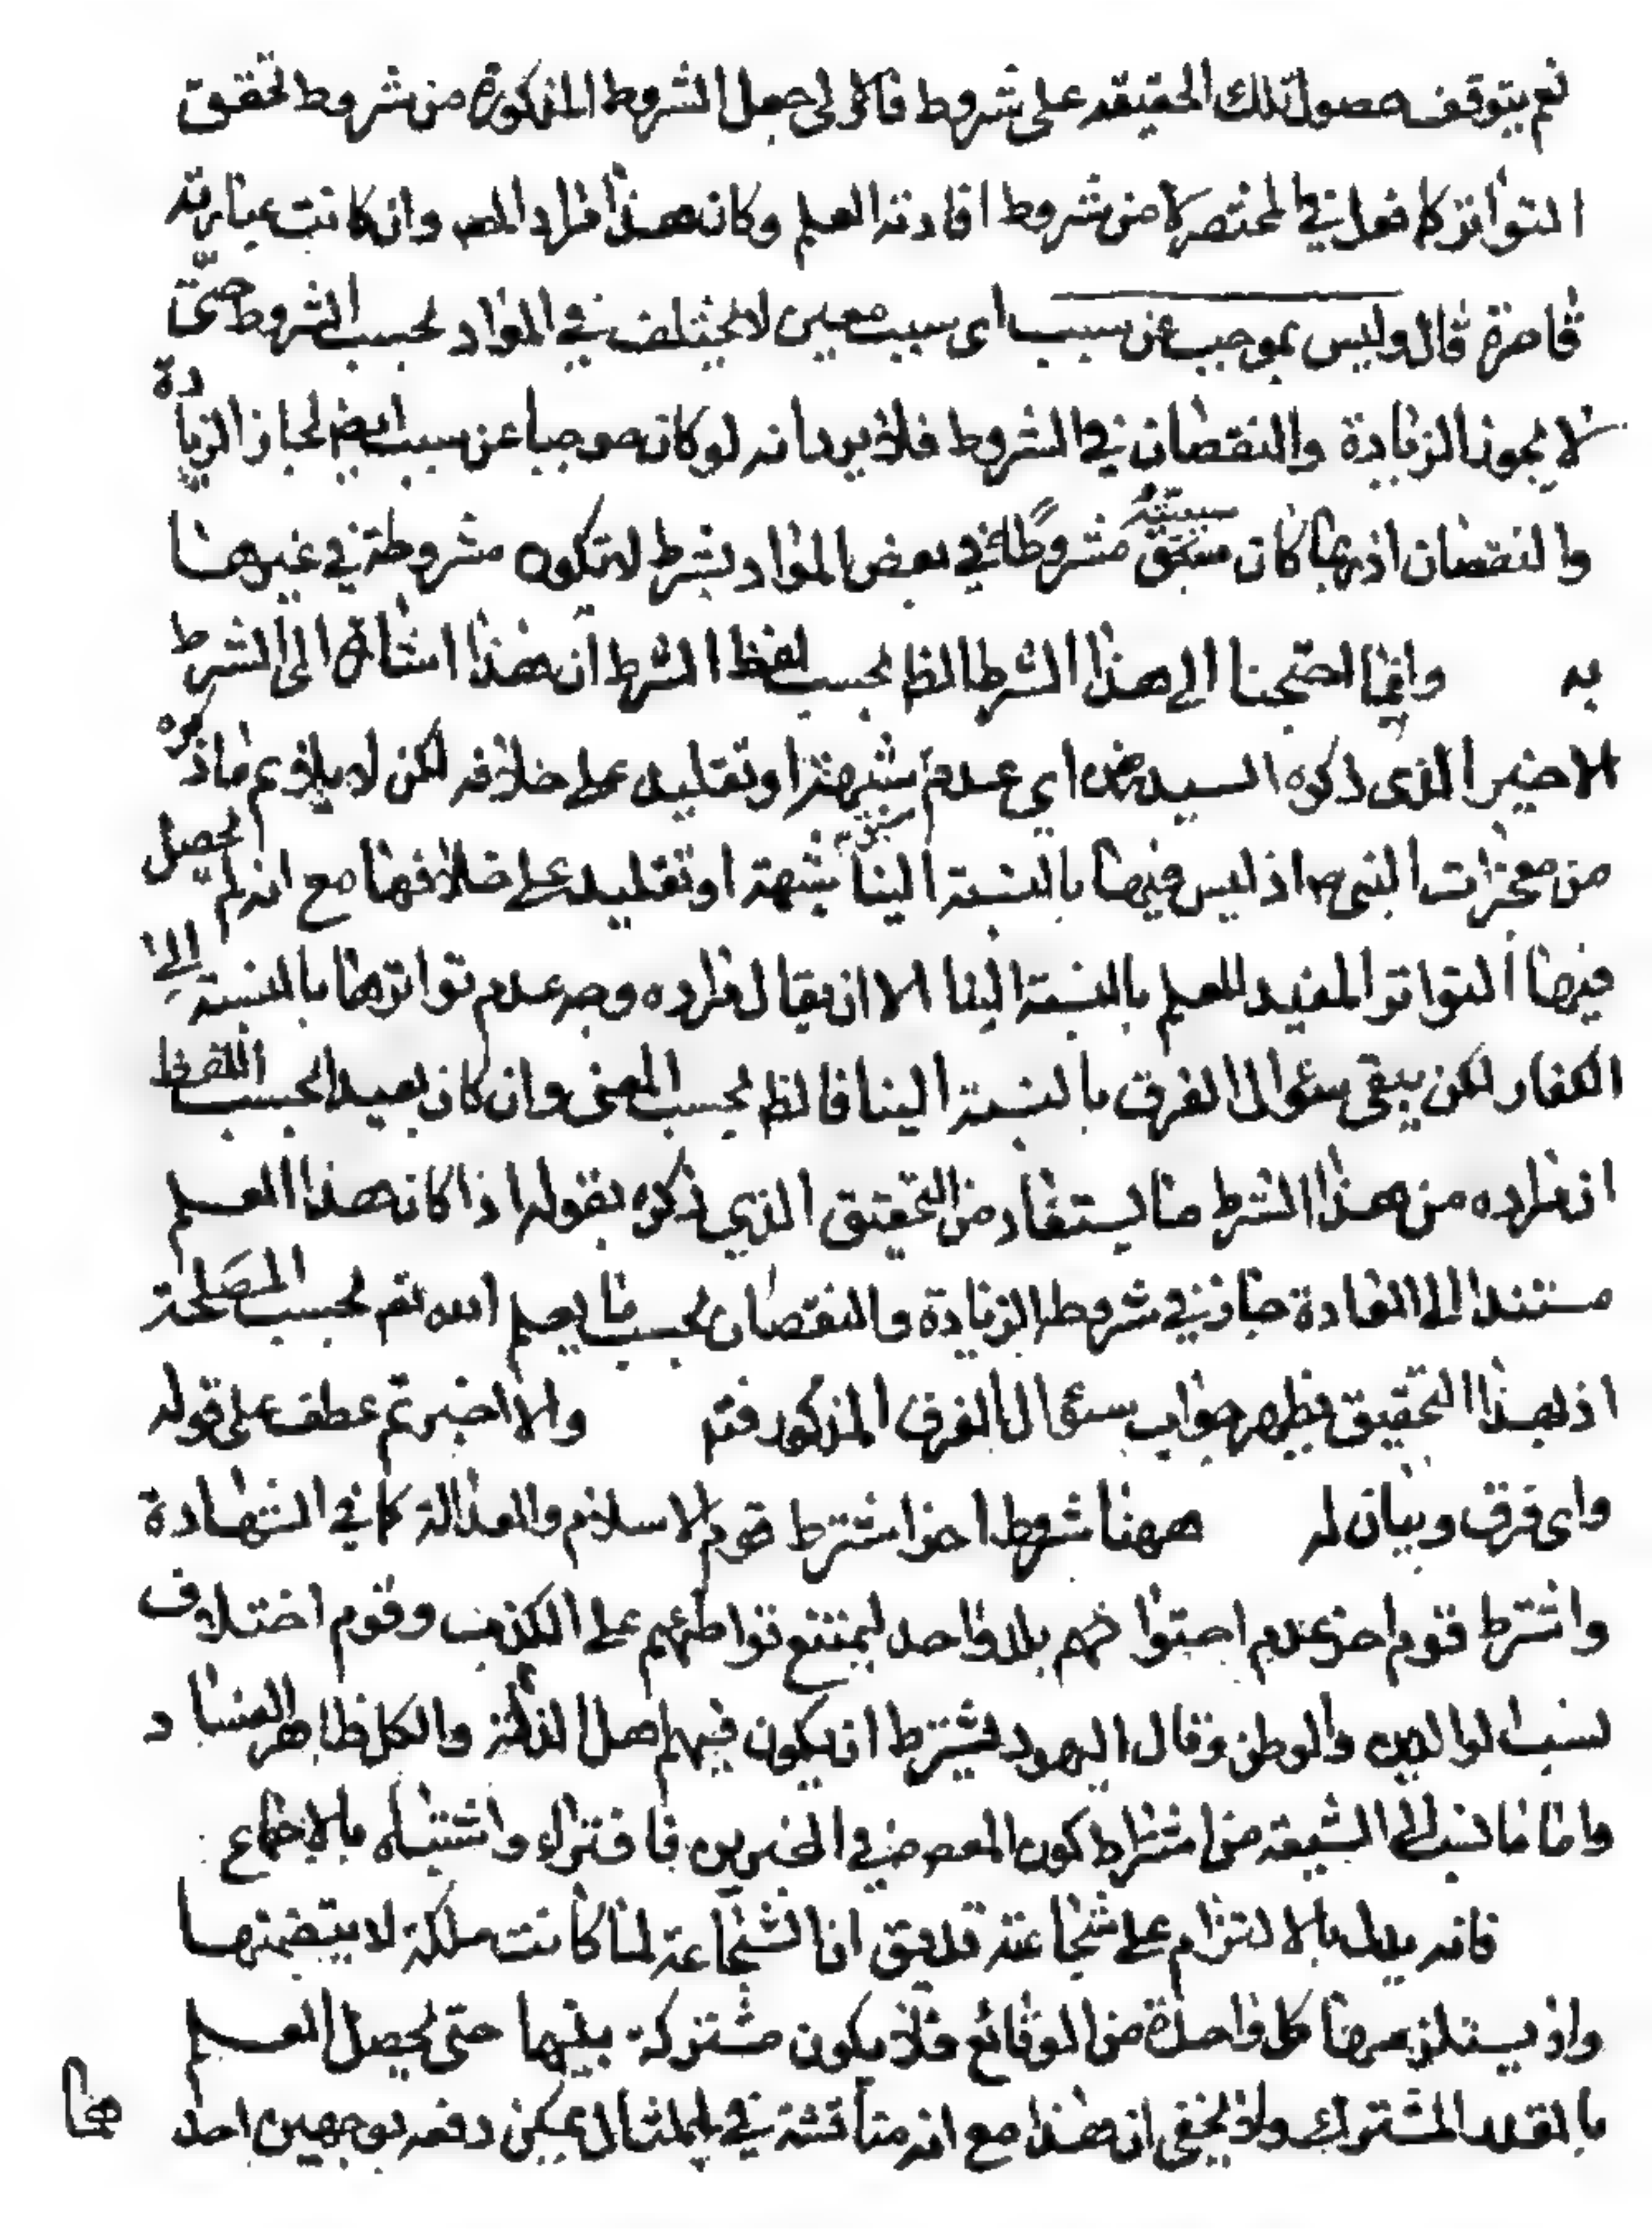 نعم يتوقف حصول تلك الحقيقه على شروط فالاولى جعل الشروط المذكورة من شروط تحقق
التواتر كما فعل في المختصر لا من شروط افادته العلم وكان هذا مراد المص وان كانت عبارته
قاصرة قال وليس بموجب عن سبب اى سبب معين لا يختلف في المواد بحسب الشروط حتى
لا يجوز الزيادة والنقصان في الشروط فلا يرد انه لو كان موجبا عن سبب ايضا لجاز الزيادة
والنقصان اذ ربما كان سببيته مشروطا في بعض المواد بشرط لا تكون مشروطة في غيرها
به وانما احتجنا الى هذا الشرط الظ بحسب لفظ الشرط ان هذا اشارة الى الشرط
الاخير الذى ذكره السيد رض اي عدم شبهة او تقليد على خلافه لكن لا يلائم ما ذكره
من معجزات النبي ص اذ ليس فيها بالنسبة الينا شبهة او تقليد على خلافها مع انه لم يحصل
فيها التواتر المفيد للعلم بالنسبة الينا الا ان يقال مراده وجه عدم تواترها بالنسبة الى
الكفار لكن يبقى سؤال الفرق بالنسبة الينا فالظ بحسب المعنى وان كان بعيدا بحسب اللفظ
ان مراده من هذا الشرط ما يستفاد من التحقيق الذي ذكره بقوله اذا كان هذا العلم
مستندا الى العادة جاز في شروطه الزيادة والنقصان بحسب ما يعلم الله تعم بحسب المصلحة
اذ بهذا التحقيق يظهر جواب سؤال الفرق المذكور فتم والا اخبرتم عطف على قوله
واى فرق وبيان له ههنا شروط اخر اشترط قوم الاسلام والعدالة كما في الشهادة
واشترط قوم اخر عدم احتوائهم بلد واحد ليمتنع تواطئهم على الكذب وقوم اختلاف
لنسب والدين والوطن وقال اليهود يشترط ان يكون فيهم اهل الذلة والكل ظاهر الفساد
واما ما نسب الى الشيعة من اشتراط كون المعصوم في المخبرين فافتراء واشتباه بالاجماع
فانه يدل بالالتزام على شجاعته قد يق ان الشجاعة لما كانت ملكة لا يتضمنها
ولا يستلزمها كل واحدة من الوقائع فلا يكون مشتركة بينها حتى يحصل العلم
بالقدر المشترك ولا يخفى ان هذا مع انه مناقشة في المثال يمكن دفعه بوجهين احد
هما